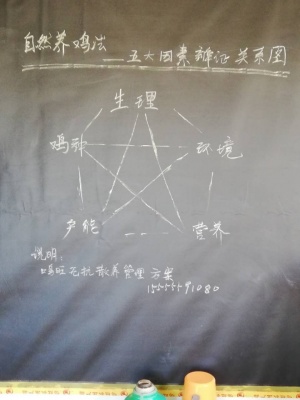 自然养鸡法
——五大因素辩证关系图
生理
鸡种
环境
产能
营养
说明:
鸡旺无抗散养管理方案
15555591080